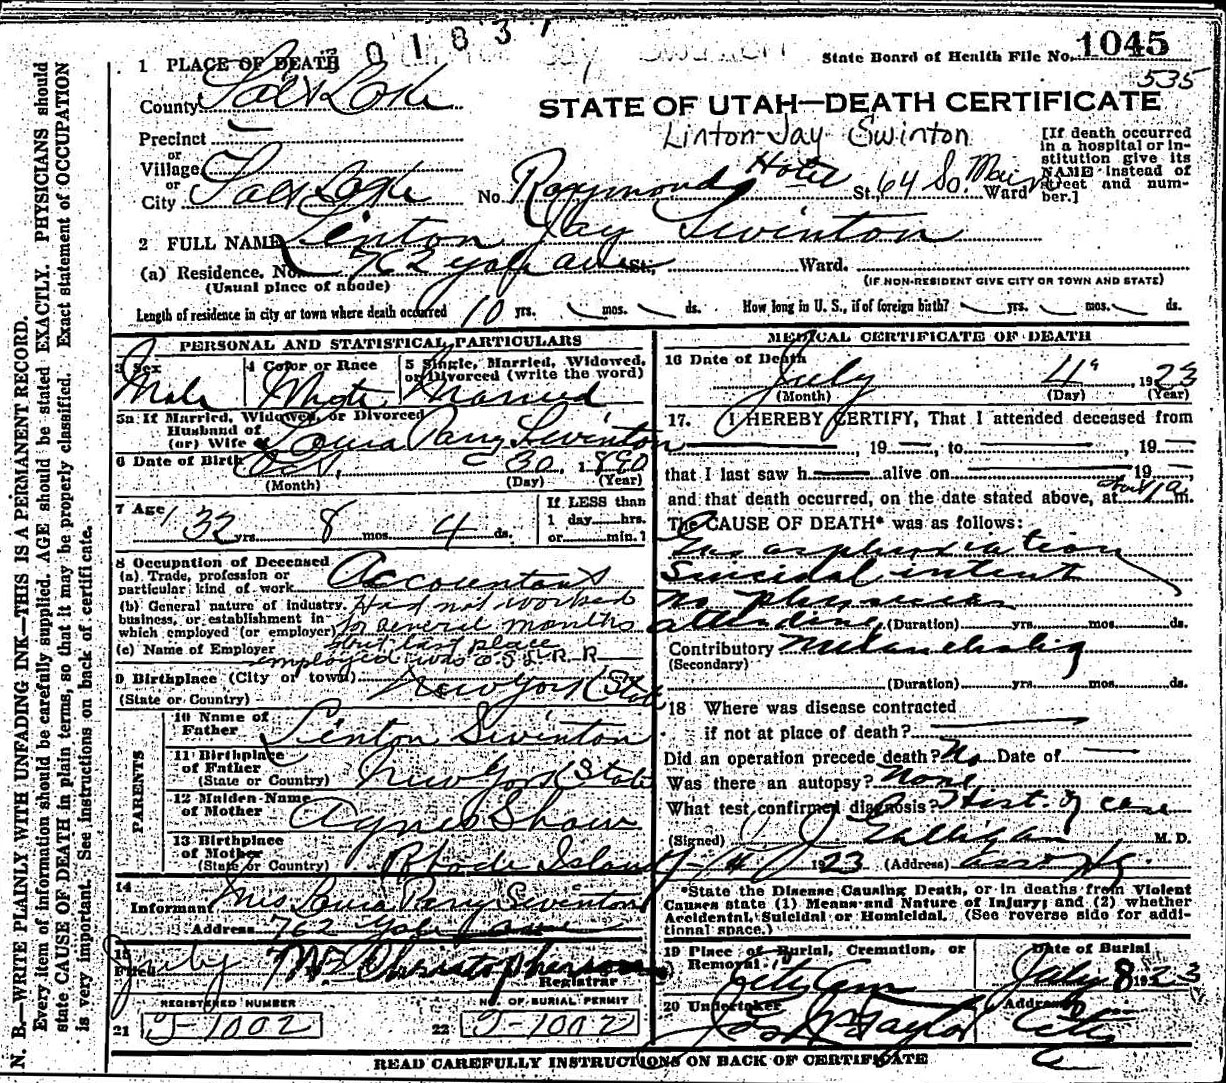 01837
State Board of Health File No. 1045
535
1 PLACE OF DEATH
County Salt Lake
STATE OF UTAH—DEATH CERTIFICATE
Linton Jay Swinton
Precinct
or
Village
or
City Salt Lake No. Raymond Hotel St. 64 So. Main Ward
[If death occurred in a hospital or institution give its NAME instead of street and number.]
2 FULL NAME Linton Jay Swinton
(a) Residence. No. 762 Yale ave St., Ward.
(Usual place of abode) (IF NON-RESIDENT GIVE CITY OR TOWN AND STATE)
Length of residence in city or town where death occurred 10 yrs. mos. ds. How long in U. S., if of foreign birth? yrs. mos. ds.
PERSONAL AND STATISTICAL PARTICULARS
3 Sex Male
4 Color or Race White
5 Single, Married, Widowed, or Divorced (write the word) Married
5a If Married, Widowed, or Divorced
Husband of
(or) Wife of Louia Parry Swinton
6 Date of Birth Oct. 30, 1890
(Month) (Day) (Year)
7 Age 32 yrs. 8 mos. 4 ds.
If LESS than
1 day hrs.
or min.?
8 Occupation of Deceased
(a) Trade, profession or particular kind of work Accountant
(b) General nature of industry, business, or establishment in which employed (or employer) Had not worked for several months
(c) Name of Employer but last place employed was O.S.L. R. R.
9 Birthplace (City or town)
(State or Country) New York State
PARENTS
10 Name of Father Linton Swinton
11 Birthplace of Father
(State or Country) New York State
12 Maiden Name of Mother Agnes Shaw
13 Birthplace of Mother
(State or Country) Rhode Island
14
Informant Mrs Louia Parry Swinton
Address 762 Yale ave
15
Filed July 7 Christopherson
Registrar
REGISTERED NUMBER
21 J-1002
NO. OF BURIAL PERMIT
22 J-1002
MEDICAL CERTIFICATE OF DEATH
16 Date of Death July 4, 1923
(Month) (Day) (Year)
17. I HEREBY CERTIFY, That I attended deceased from
, 19 , to , 19
that I last saw h alive on 19
and that death occurred, on the date stated above, at m.
The CAUSE OF DEATH* was as follows:
Gas asphyxiation
Suicidal intent
no physician
attending (Duration) yrs. mos. ds.
Contributory Melancholia
(Secondary)
(Duration) yrs. mos. ds.
18 Where was disease contracted
if not at place of death?
Did an operation precede death? No Date of
Was there an autopsy? None
What test confirmed diagnosis? Hist. of case
(Signed) J Galligan M. D.
7-4 1923 (Address)
*State the Disease Causing Death, or in deaths from Violent
Causes state (1) Means and Nature of Injury; and (2) whether
Accidental, Suicidal or Homicidal. (See reverse side for additional space.)
19 Place of Burial, Cremation, or Removal City Cem
Date of Burial July 8 1923
20 Undertaker Jos Wm Taylor
Address City
READ CAREFULLY INSTRUCTIONS ON BACK OF CERTIFICATE
N. B.—WRITE PLAINLY WITH UNFADING INK—THIS IS A PERMANENT RECORD.
Every item of information should be carefully supplied. AGE should be stated EXACTLY. PHYSICIANS should
state CAUSE OF DEATH in plain terms, so that it may be properly classified. Exact statement of OCCUPATION
is very important. See instructions on back of certificate.